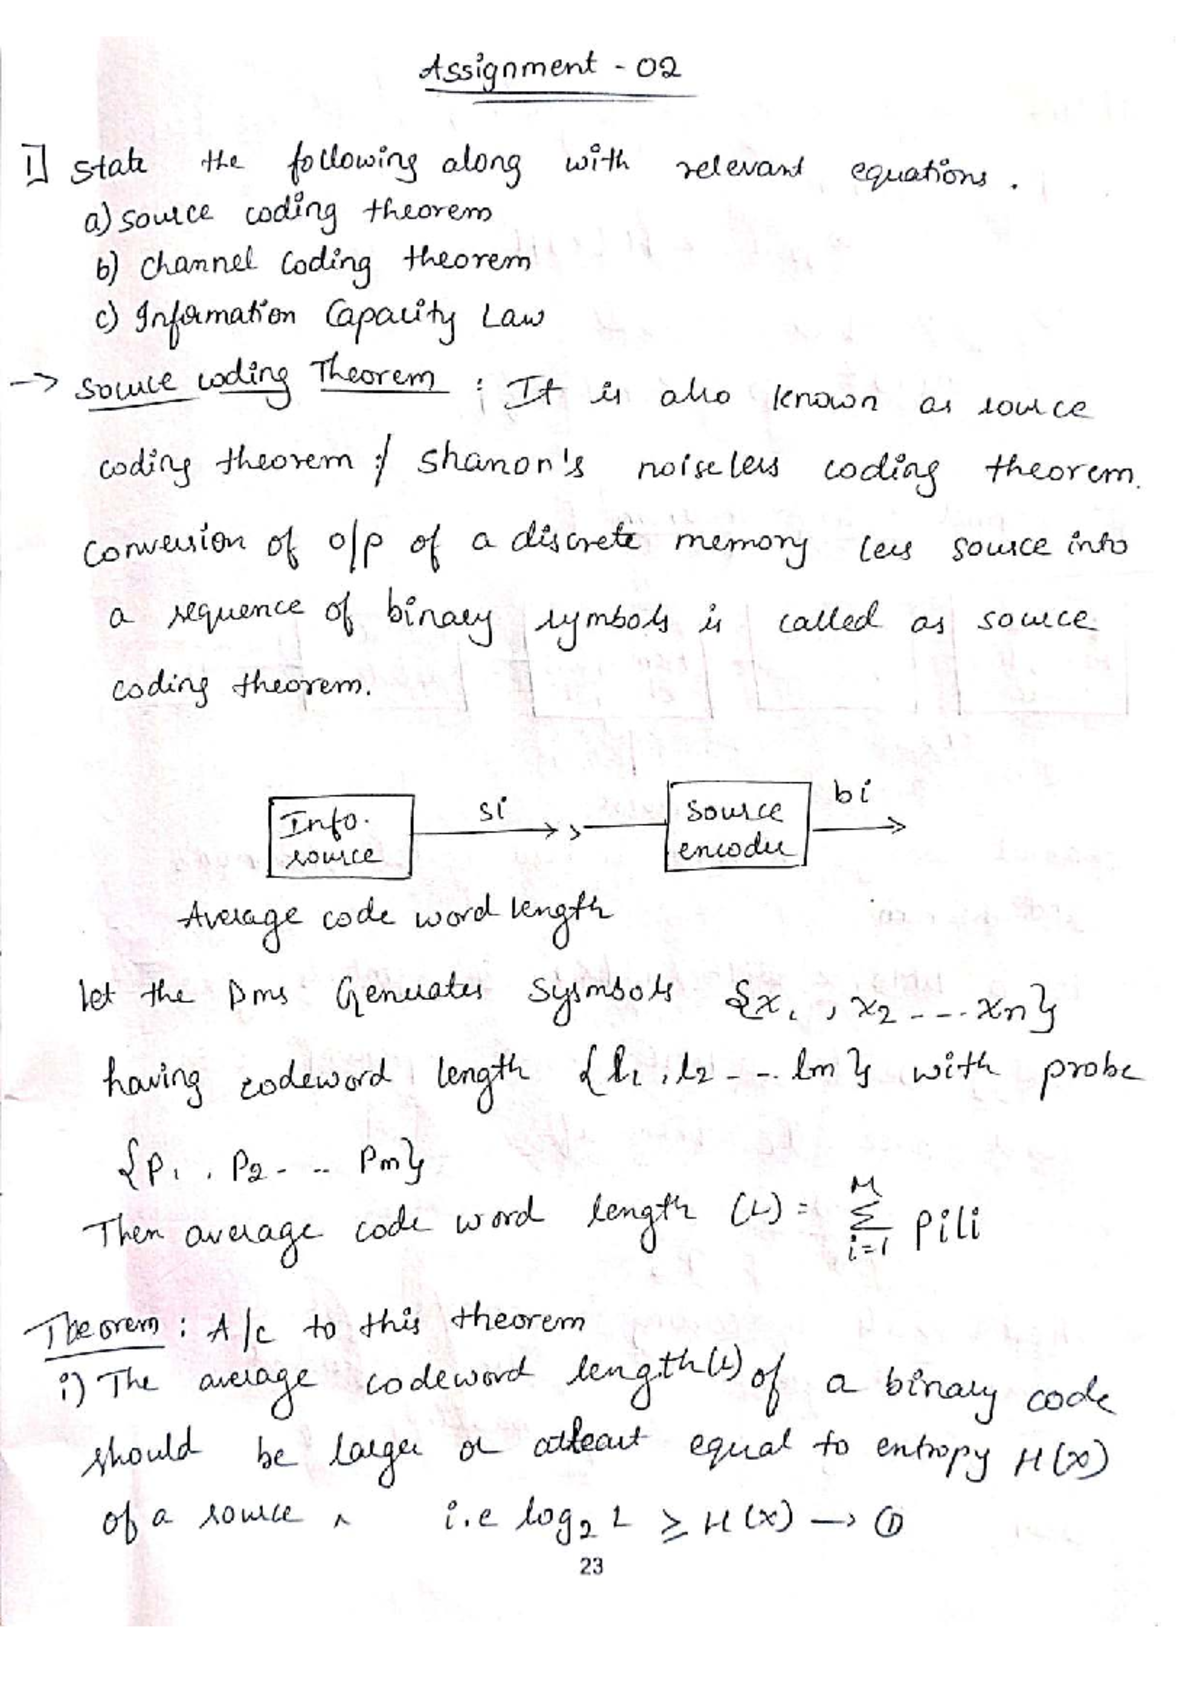 Assignment - 02
1] State the following along with relevant equations.
a) source coding theorem
b) Channel Coding theorem
c) Information Capacity Law
-> Source coding Theorem : It is also known as source
coding theorem :/ Shanon's noiseless coding theorem.
Conversion of o/p of a discrete memory less source into
a sequence of binary symbols is called as source
coding theorem.
Info. source
si
Source encoder
bi
Average code word length
Let the Dms Generates Sysmbols {x1, x2 --- xn}
having codeword length {l1, l2 - -. lm} with probe
{P1, P2 - .. Pm}
Then average code word length (L) = M Σ i=1 Pili
Theorem : A/c to this theorem
i) The average codeword length(L) of a binary code
should be larger or atleast equal to entropy H(x)
of a source i.e log2 L ≥ H(x) -> ①
23